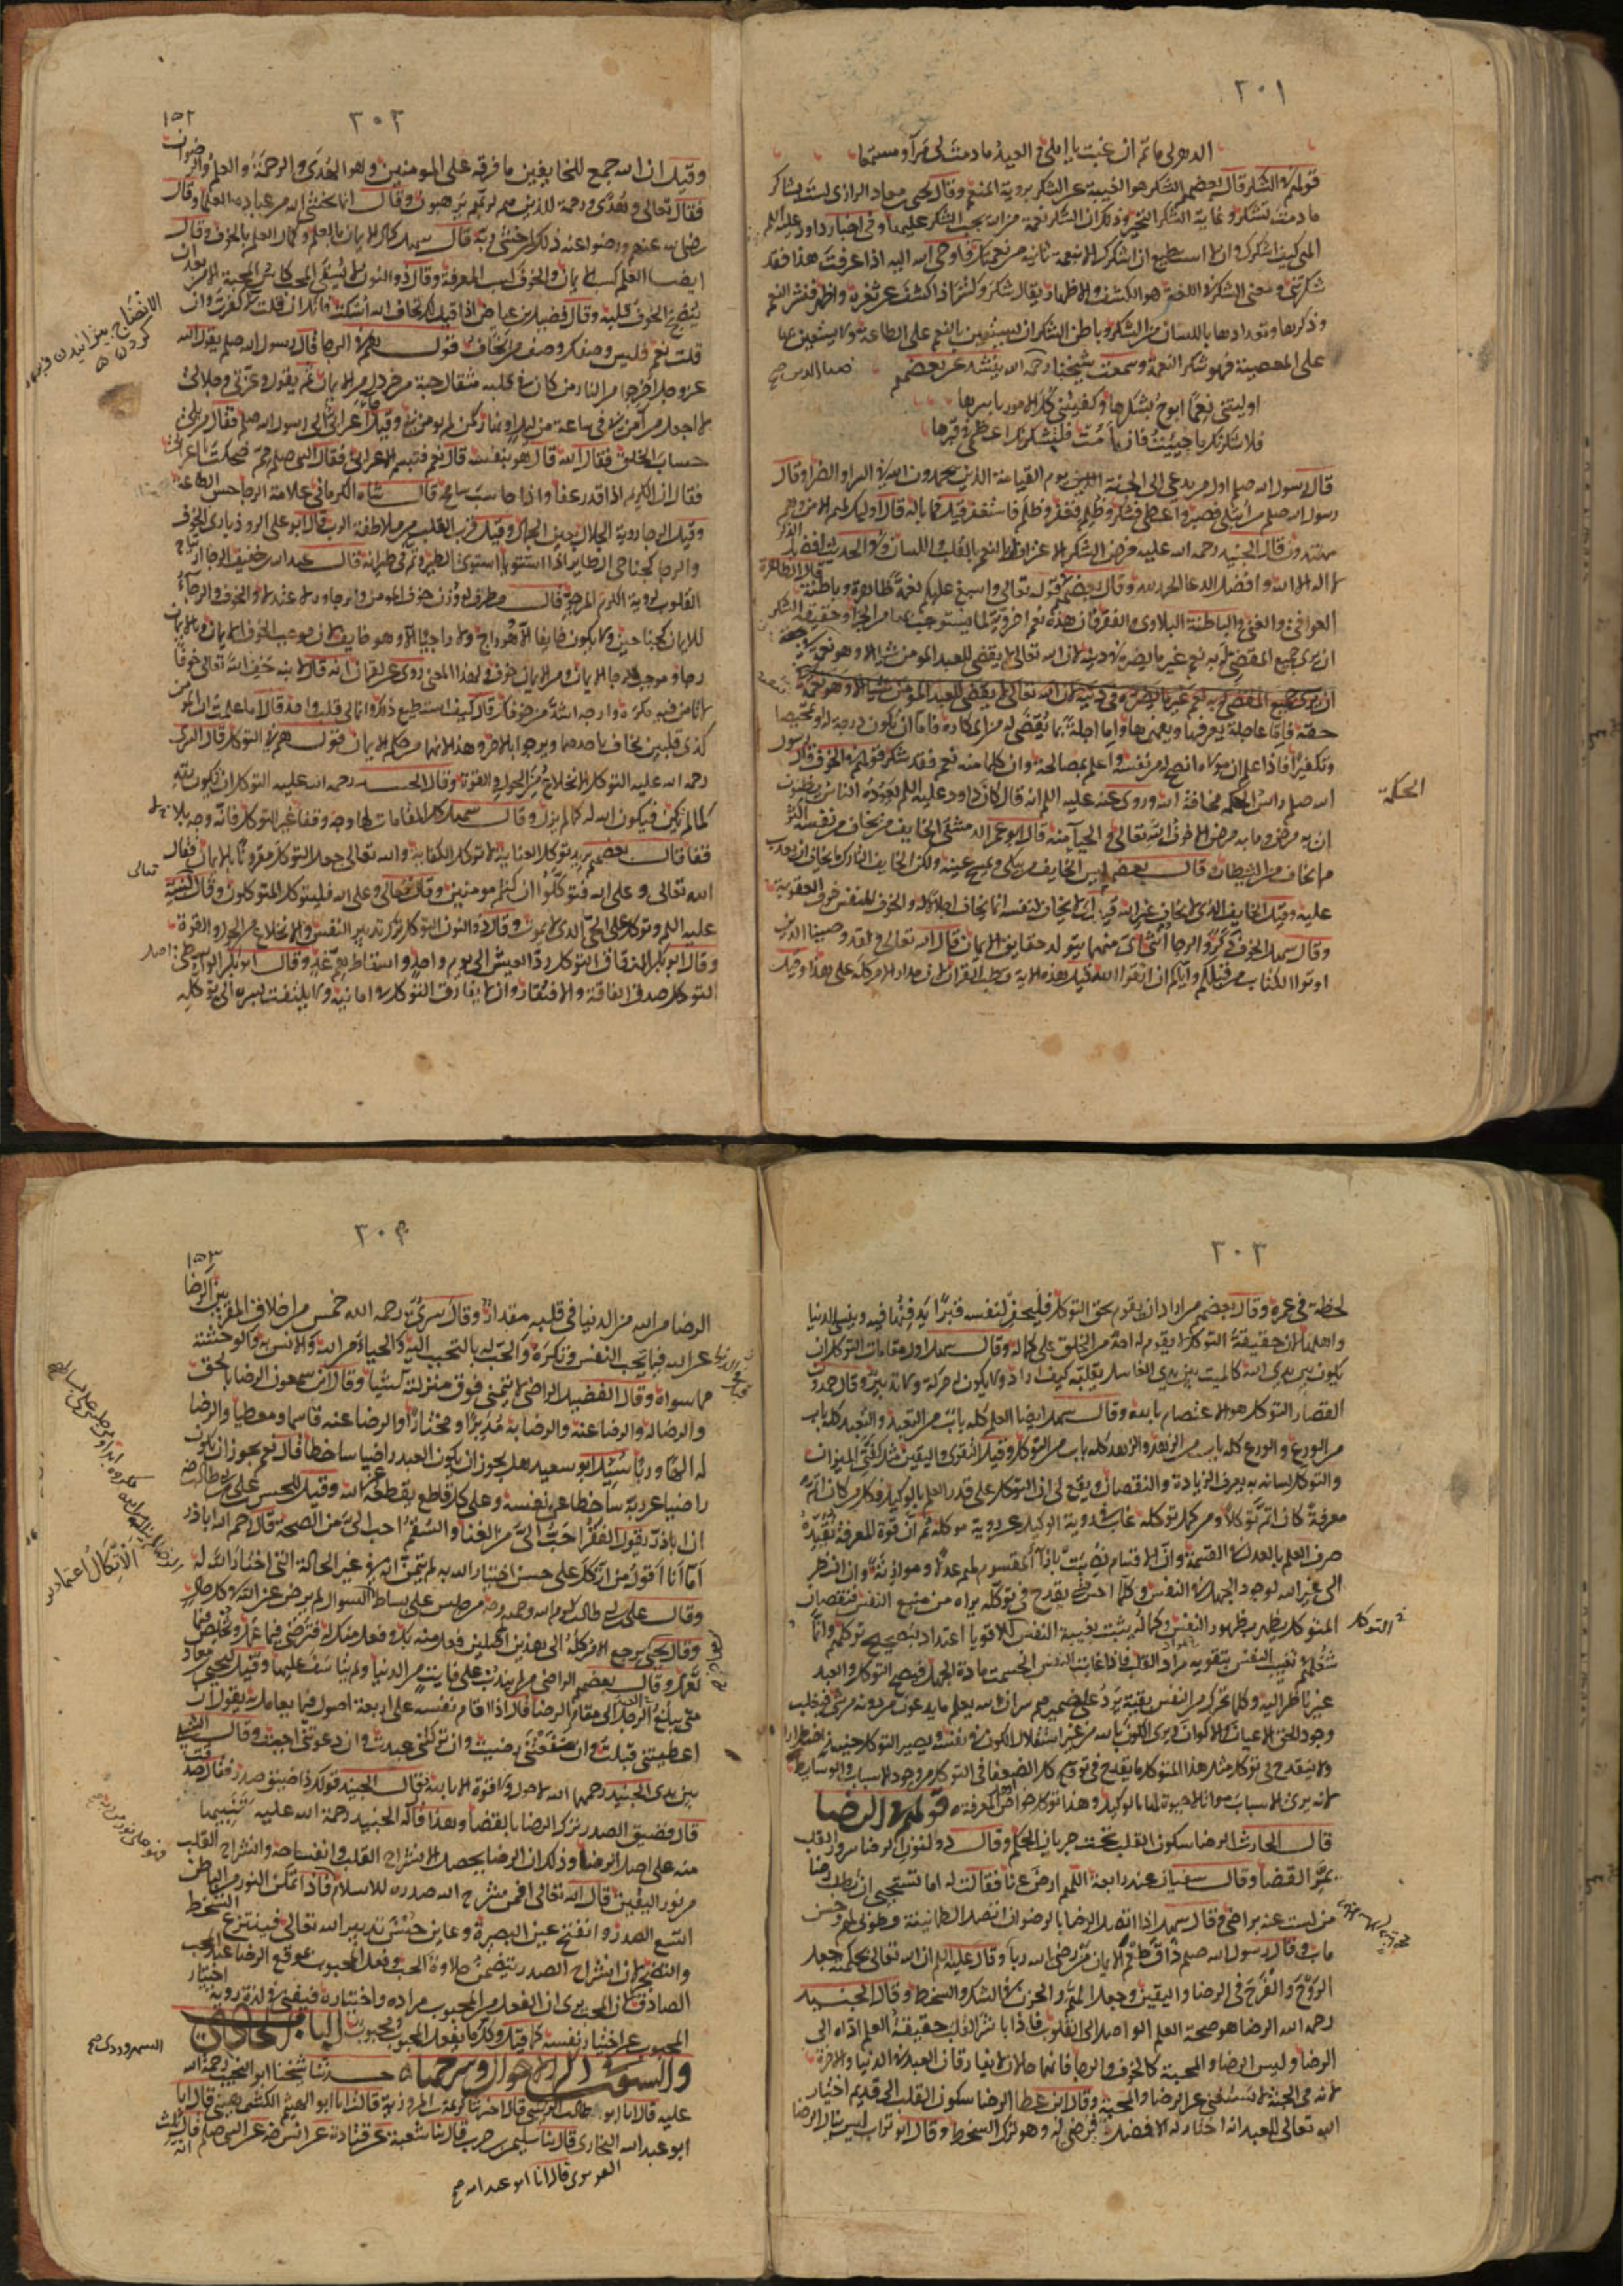 ٣٠١
الدهر لي مأتم ان غبت يا املي والعيد ما دمت لي مرآ ومستمعا
قولهم في الشكر قال بعضهم الشكر هو الغيبة عن الشكر بروية المنعم وقال يحيى بن معاذ الرازي لست بشاكر
ما دمت تشكر وغاية الشكر التحير وذلك ان الشكر نعمة من الله يجب الشكر عليها وفي اخبار داود عليه السلم
الهي كيف اشكرك وانا لا استطيع ان اشكرك الا بنعمة ثانية من نعمك فاوحى الله اليه اذا عرفت هذا فقد
شكرتني ومعنى الشكر في اللغة هو الكشف والاظهار يقال شكر وكشر اذا كشف عن ثغره واظهره فنشر النعم
وذكرها وتعدادها باللسان من الشكر وباطن الشكر ان يستعين بالنعم على الطاعة ولا يستعين بها
على المعصية فهو شكر النعمة وسمعت شيخنا رحمه الله ينشد عن بعضهم
ضياء الدين صح
اوليتني نعما ابوح بشكرها وكفيتني كل الامور باسرها
فلاشكرنك ما حييت فان امت فلتشكرنك اعظمي في قبرها
قال رسول الله صلعم اول من يدعى الى الجنة يوم القيامة الذين يحمدون الله في السرا والضرا وقال
رسول الله صلعم من ابتلي فصبر واعطي فشكر وظلم فغفر وظلم فاستغفر قيل فما باله قال اوليك لهم الامن وهم
مهتدون قال الجنيد رحمه الله عليه فرض الشكر الاعتراف بالنعم بالقلب واللسان وفي الحديث افضل الذكر
لا اله الا الله وافضل الدعا الحمد لله وقال بعضهم في قوله تعالى واسبغ عليكم نعمة ظاهرة وباطنة قال الظاهرة
العوافي والغنى والباطنة البلاوي والفقر فان هذه نعم اخروية لما يستوجب بها من الجزا وحقيقة الشكر
ان يرى جميع المقضي له به نعم غير ما يضره في دينه لان الله تعالى لا يقضي للعبد المومن شيا الا وهو نعمة في
حقه فاما عاجلة يعرفها ويفهمها واما اجلة بما يقضى له من المكاره فاما ان يكون درجة له او تمحيصا
وتكفيرا فاذا علم ان مولاه انصح له من نفسه واعلم بمصالحه وان كلما منه نعم فقد شكر قولهم في الخوف قال رسول
الله صلعم راس الحكمة مخافة الله وروي عنه عليه السلم انه قال كان داود عليه السلم يعوده الناس يظنون
ان به مرضا وما به مرض الا خوف الله تعالى والحيا منه قال ابو عمر الدمشقي الخايف من يخاف من نفسه اكثر
مما يخاف من الشيطان وقال بعضهم ليس الخايف من يبكي ويمسح عينيه ولكن الخايف التارك ما يخاف ان يعذب
عليه وقيل الخايف الذي لا يخاف غير الله قيل اي لا يخاف لنفسه انما يخاف اجلالا له والخوف للنفس خوف العقوبة
وقال سهل الخوف ذكر والرجا انثى اي منهما يتولد حقايق الايمان قال الله تعالى ولقد وصينا الذين
اوتوا الكتاب من قبلكم واياكم ان اتقوا الله قيل هذه الاية قطب القران لان مدار الامر كله على هذا وقيل
الحكمة
٣٠٢
١٥٢
وقيل ان الله جمع للخايفين ما فرقه على المومنين وهو الهدى والرحمة والعلم والرضوان
فقال تعالى وهدى ورحمة للذين هم لربهم يرهبون وقال انما يخشى الله من عباده العلما وقال
رضي الله عنهم ورضوا عنه ذلك لمن خشي ربه قال سهل كمال الايمان بالعلم وكمال العلم بالخوف وقال
ايضا العلم كسب الايمان والخوف كسب المعرفة وقال ذو النون لا يسقى المحب كاس المحبة الا من بعد ان
ينضج الخوف قلبه وقال فضيل بن عياض اذا قيل لك تخاف الله اسكت فانك ان قلت لا كفرت وان
قلت نعم فليس وصفك وصف من يخاف قولهم في الرجا قال رسول الله صلعم يقول الله
عز وجل اخرجوا من النار من كان في قلبه مثقال حبة من خردل من الايمان ثم يقول وعزتي وجلالي
لا اجعل من آمن بي في ساعة من ليل او نهار كمن لم يومن بي وقيل جا اعرابي الى رسول الله صلعم فقال من يلي
حساب الخلق فقال الله قال هو بنفسه قال نعم فتبسم الاعرابي فقال النبي صلعم مم ضحكت يا اعرابي
فقال ان الكريم اذا قدر عفا واذا حاسب سامح قال شاه الكرماني علامة الرجا حسن الطاعة
وقيل الرجا روية الجلال بعين الجمال وقيل قرب القلب من ملاطفة الرب قال ابو علي الروذباري الخوف
والرجا كجناحي الطاير اذا استويا استوى الطير وتم في طيرانه قال عبد الله بن خفيف الرجا ارتياح
القلوب لروية الكرم المرجو قال مطرف لو وزن خوف المومن ورجاوه لاعتدلا والخوف والرجا
للايمان كجناحين ولا يكون خايفا الا وهو راج ولا راجيا الا وهو خايف لان موجب الخوف الايمان وبالايمان
رجا وموجب الرجا الايمان ومن الايمان خوف ولهذا المعنى روي عن لقمان انه قال لابنه خف الله تعالى خوفا
لا تامن فيه مكره وارجه اشد من خوفك قال كيف استطيع ذلك وانما لي قلب واحد قال اما علمت ان المومن
كذي قلبين يخاف باحدهما ويرجو بالاخر وهذا لانهما من حكم الايمان قولهم في التوكل قال السري
رحمه الله عليه التوكل الانخلاع من الحول والقوة وقال الجنيد رحمه الله عليه التوكل ان تكون لله
كما لم تكن فيكون الله لك كما لم يزل وقال سهل كل المقامات لها وجه وقفا غير التوكل فانه وجه بلا
قفا قال بعضهم يريد توكل العناية لا توكل الكفاية والله تعالى جعل التوكل مقرونا بالايمان فقال
تعالى
الله تعالى وعلى الله فتوكلوا ان كنتم مومنين وقال تعالى وعلى الله فليتوكل المتوكلون وقال لنبيه
عليه السلم وتوكل على الحي الذي لا يموت وقال ذو النون التوكل ترك تدبير النفس والانخلاع من الحول والقوة
وقال ابو بكر الدقاق التوكل رد العيش الى يوم واحد واسقاط هم غد وقال ابو بكر الواسطي اصل
التوكل صدق الفاقة والافتقار وان لا يفارق التوكل في امانيه ولا يلتفت بسره الى توكله
٣٠٣
لحظة في عمره وقال بعضهم من اراد ان يقوم بحق التوكل فليحفر لنفسه قبرا يدفنها فيه وينسى الدنيا
واهلها لان حقيقة التوكل لا يقوم له احد من الخلق على كماله وقال سهل اول مقامات التوكل ان
يكون بين يدي الله كالميت بين يدي الغاسل يقلبه كيف اراد ولا يكون له حركة ولا تدبير وقال حمدون
القصار التوكل هو الاعتصام بالله وقال سهل ايضا العلم كله باب من التعبد والتعبد كله باب
من الورع والورع كله باب من الزهد والزهد كله باب من التوكل وقيل التقوى واليقين مثل كفتي الميزان
والتوكل لسانه به يعرف الزيادة والنقصان ويقع لي ان التوكل على قدر العلم بالوكيل فكل من كان اتم
معرفة كان اتم توكلا ومن كمل توكله غاب في روية الوكيل عن روية توكله ثم ان قوة المعرفة تفيد
صرف العلم بالعدل في القسمة وان الاقسام نصبت بازا المقسوم لهم عدلا وموازنة وان النظر
الى غير الله لوجود الجهل في النفس وكلما احس بشي يقدح في توكله يراه من منبع النفس فنقصان
التوكل
يظهر بظهور النفس وكماله يثبت بغيبة النفس للاقويا اعتداد بتصحيح توكلهم وانما
شغلهم بتغييب النفس بتقوية مواد القلب فاذا غابت النفس انحسمت مادة الجهل فصح التوكل والعبد
غير ناظر اليه وكلما تحرك من النفس بقية يرد على ضميرهم سر ان الله يعلم ما يدعون من دونه من شي فيغلب
وجود الحق الاعيان والاكوان ويرى الكون بالله من غير استقلال الكون في نفسه ويصير التوكل حينيذ اضطرارا
ولا يقدح في توكل مثل هذا المتوكل ما يقدح في توكل الضعفا في التوكل من وجود الاسباب والوسايط
لانه يرى الاسباب مواتا لا حيوة لها الا بالوكيل وهذا توكل خواص اهل المعرفة قولهم في الرضا
قال الحارث الرضا سكون القلب تحت جريان الحكم وقال ذو النون الرضا سرور القلب
بمر القضا وقال سفيان عند رابعة اللهم ارض عنا فقالت له اما تستحيي ان تطلب رضا
من لست عنه براض وقال سهل اذا اتصل الرضا بالرضوان اتصلت الطمانينة فطوبى لهم وحسن
ماب وقال رسول الله صلعم ذاق طعم الايمان من رضي بالله ربا وقال عليه السلم ان الله تعالى بحكمته جعل
الروح والفرح في الرضا واليقين وجعل الهم والحزن في الشك والسخط وقال الجنيد
رحمه الله الرضا هو صحة العلم الواصل الى القلوب فاذا باشر القلب حقيقة العلم اداه الى
الرضا وليس الرضا والمحبة كالخوف والرجا فانهما حالان لا يفارقان العبد في الدنيا والاخرة
لانه في الجنة لا يستغني عن الرضا والمحبة وقال ابن عطا الرضا سكون القلب الى قديم اختيار
الله تعالى للعبد انه اختار له الافضل فيرضى له وهو ترك السخط وقال ابو تراب ليس ينال الرضا
٣٠٤
١٥٣
الرضا من الله من للدنيا في قلبه مقدار وقال سري رحمه الله خمس من اخلاق المقربين الرضا
عن الله فيما تحب النفس وتكره والحب له بالتحبب اليه والحياء من الله والانس به والوحشة
مما سواه وقال الفضيل الراضي لا يتمنى فوق منزلته شيا وقال ابن سمعون الرضا بالحق
والرضا له والرضا عنه والرضا به مدبرا ومختارا والرضا عنه قاسما ومعطيا والرضا
له الها وربا سيل ابو سعيد هل يجوز ان يكون العبد راضيا ساخطا قال نعم يجوز ان يكون
راضيا عن ربه ساخطا على نفسه وعلى كل قاطع يقطعه عن الله وقيل للحسن بن علي بن ابي طالب رضه
ان ابا ذر يقول الفقر احب الي من الغنا والسقم احب الي من الصحة قال رحم الله ابا ذر
اما انا اقول من اتكل على حسن اختيار الله له لم يتمن انه في غير الحالة التي اختار الله له
وقال علي بن ابي طالب كرم الله وجهه من جلس على بساط السوال لم يرض عن الله في كل حال
وقال يحيى يرجع الامر كله الى هذين الاصلين فعل منه بك وفعل منك له فترضى فيما عمل وتخلص فيما
تعمل وقال بعضهم الراضي من لم يندم على فايت من الدنيا ولم يتاسف عليها وقيل ليحيى بن معاذ
متى يبلغ الرجل الى مقام الرضا قال اذا اقام نفسه على اربعة اصول فيما يعامل به يقول ان
اعطيتني قبلت وان منعتني رضيت وان تركتني عبدت وان دعوتني اجبت وقال الشبلي
بين يدي الجنيد رحمهما الله لا حول ولا قوة الا بالله فقال الجنيد قولك ذا ضيق صدر فقال صدقت
قال فضيق الصدر ترك الرضا بالقضا وهذا قاله الجنيد رحمة الله عليه تنبيها
منه على اصل الرضا وذلك ان الرضا يحصل لانشراح القلب وانفساحه وانشراح القلب
من نور اليقين قال الله تعالى افمن شرح الله صدره للاسلام فاذا تمكن النور من الباطن
اتسع الصدر وانفتح عين البصيرة وعاين حسن تدبير الله تعالى فينتزع السخط
والتضجر لان انشراح الصدر يتضمن حلاوة الحب وفعل المحبوب بموقع الرضا عند المحب
الصادق لان المحب يرى ان الفعل من المحبوب مراده واختياره فيفنى في لذة روية اختيار
المحبوب عن اختيار نفسه كما قيل وكل ما يفعل المحبوب محبوب الباب الحادي
والستون في ذكر الاحوال وشرحها حدثنا شيخنا ابو النجيب رحمة الله
السهروردي صح
عليه قال انا ابو طالب الزينبي قال اخبرتنا كريمة المروزية قالت انا ابو الهيثم الكشميهني قال انا
ابو عبد الله البخاري قال ثنا سليمن بن حرب قال ثنا شعبة عن قتادة عن انس رضه عن النبي صلعم انه قال ثلث
الفربري قال انا ابو عبد الله صح